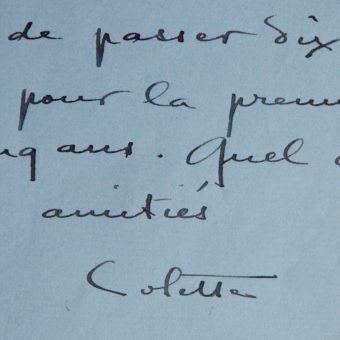 de passer six
pour la prem
nq ans. Quel
amitiés
Colette